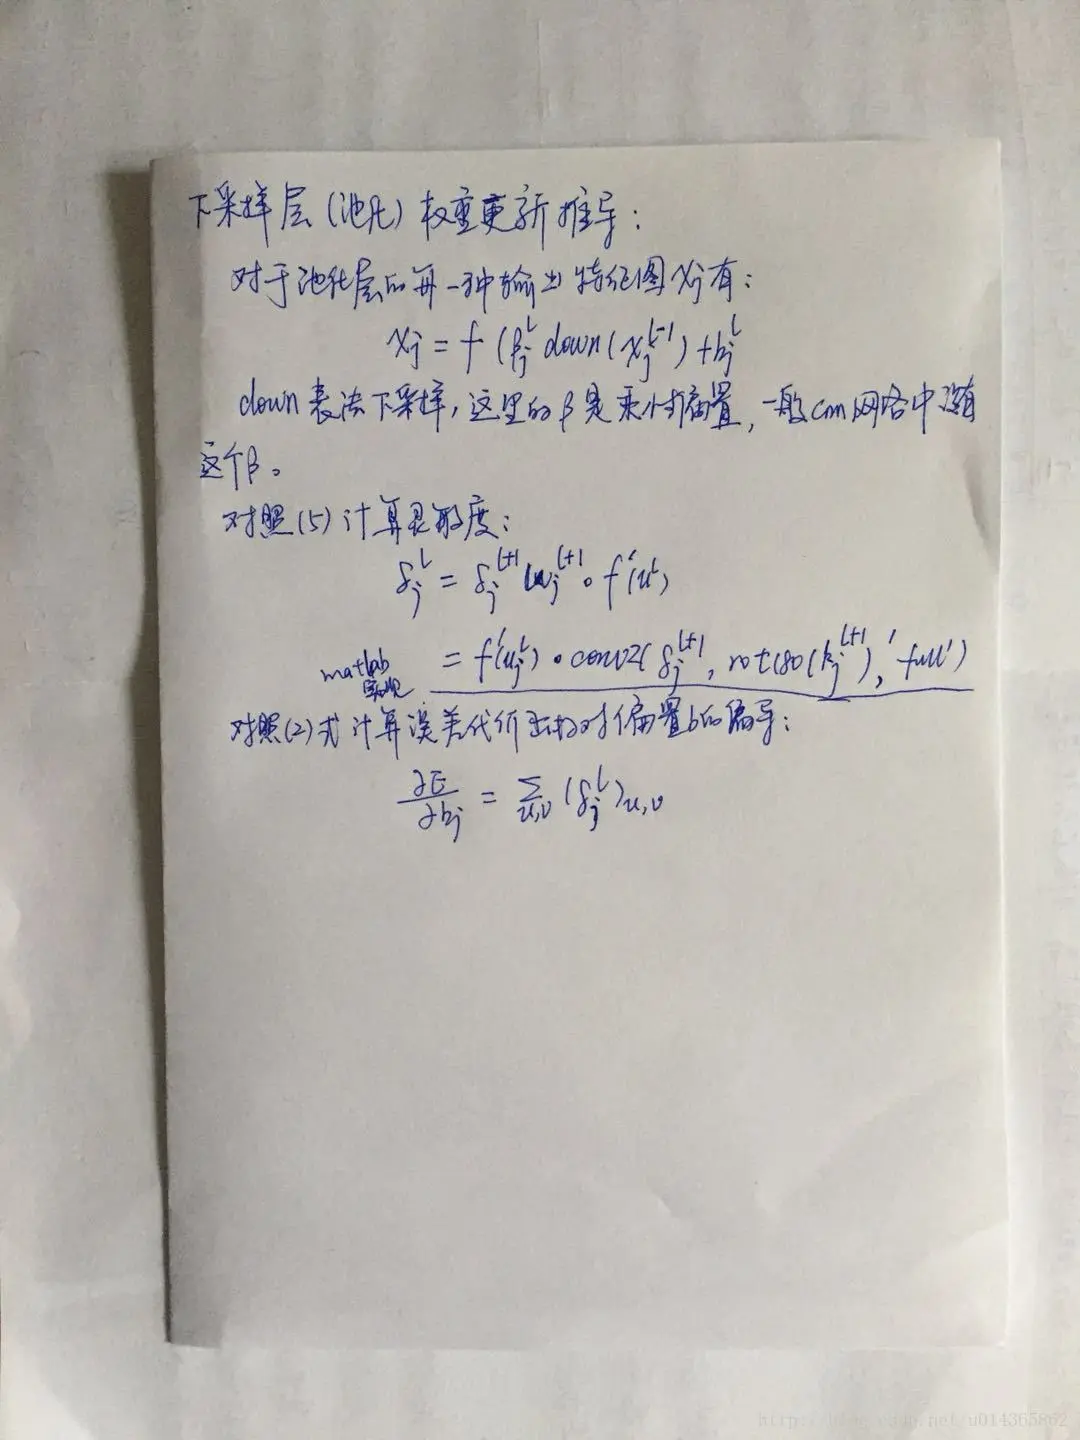 下采样层(池化)权重更新推导:
对于池化层的每一种输出特征图xj有:
xj = f(βj^l down(xj^(l-1)) + bj^l
down表法下采样,这里的β是乘性偏置,一般cnn网络中没有
这个β。
对照(5)计算灵敏度:
δj^l = δj^(l+1) wj^(l+1) ∘ f'(u^l)
matlab实现 = f'(uj^l) ∘ conv2(δj^(l+1), rot180(kj^(l+1)), 'full')
对照(2)式计算误差代价 对偏置b的偏导:
∂E/∂bj = Σu,v (δj^l)u,v
http://blog.csdn.net/u014365862